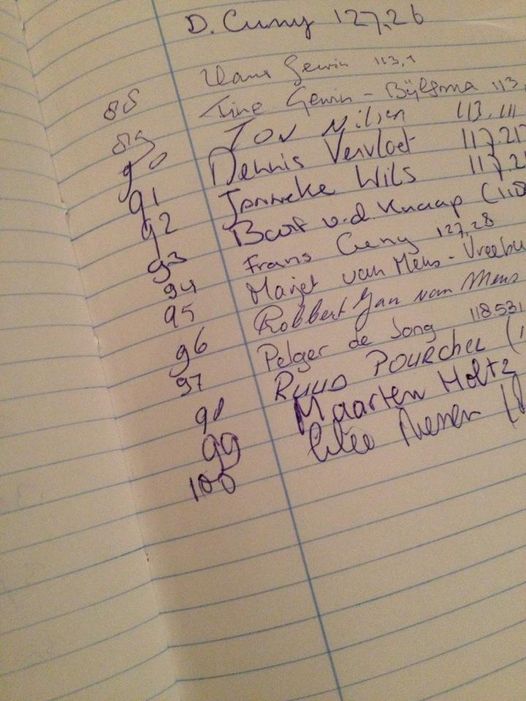 D. Cuny 127,26
Hans Gewin 113,1
88 Tine Gewin - Bijlsma 113,
89 Ton Nilsen 113,111
90 Dennis Vervloet 117,21
91 Janneke Wils 117,2
92 Bart v.d. Knaap (118
93 Frans Cuny 127,28
94 Marjet van Mens - Vreebu
95 Robbert Jan van Mens
96 Pelger de Jong 118531
97 Ruud POURCHEL (1
98 Maarten Holtz
99
100